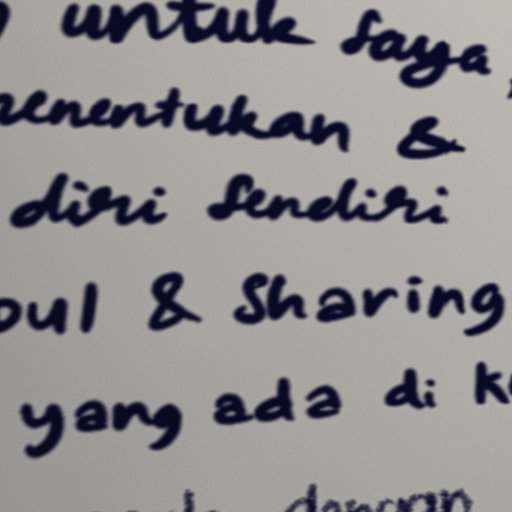 untuk saya,
menentukan &
diri sendiri
& sharing
yang ada di
dengan